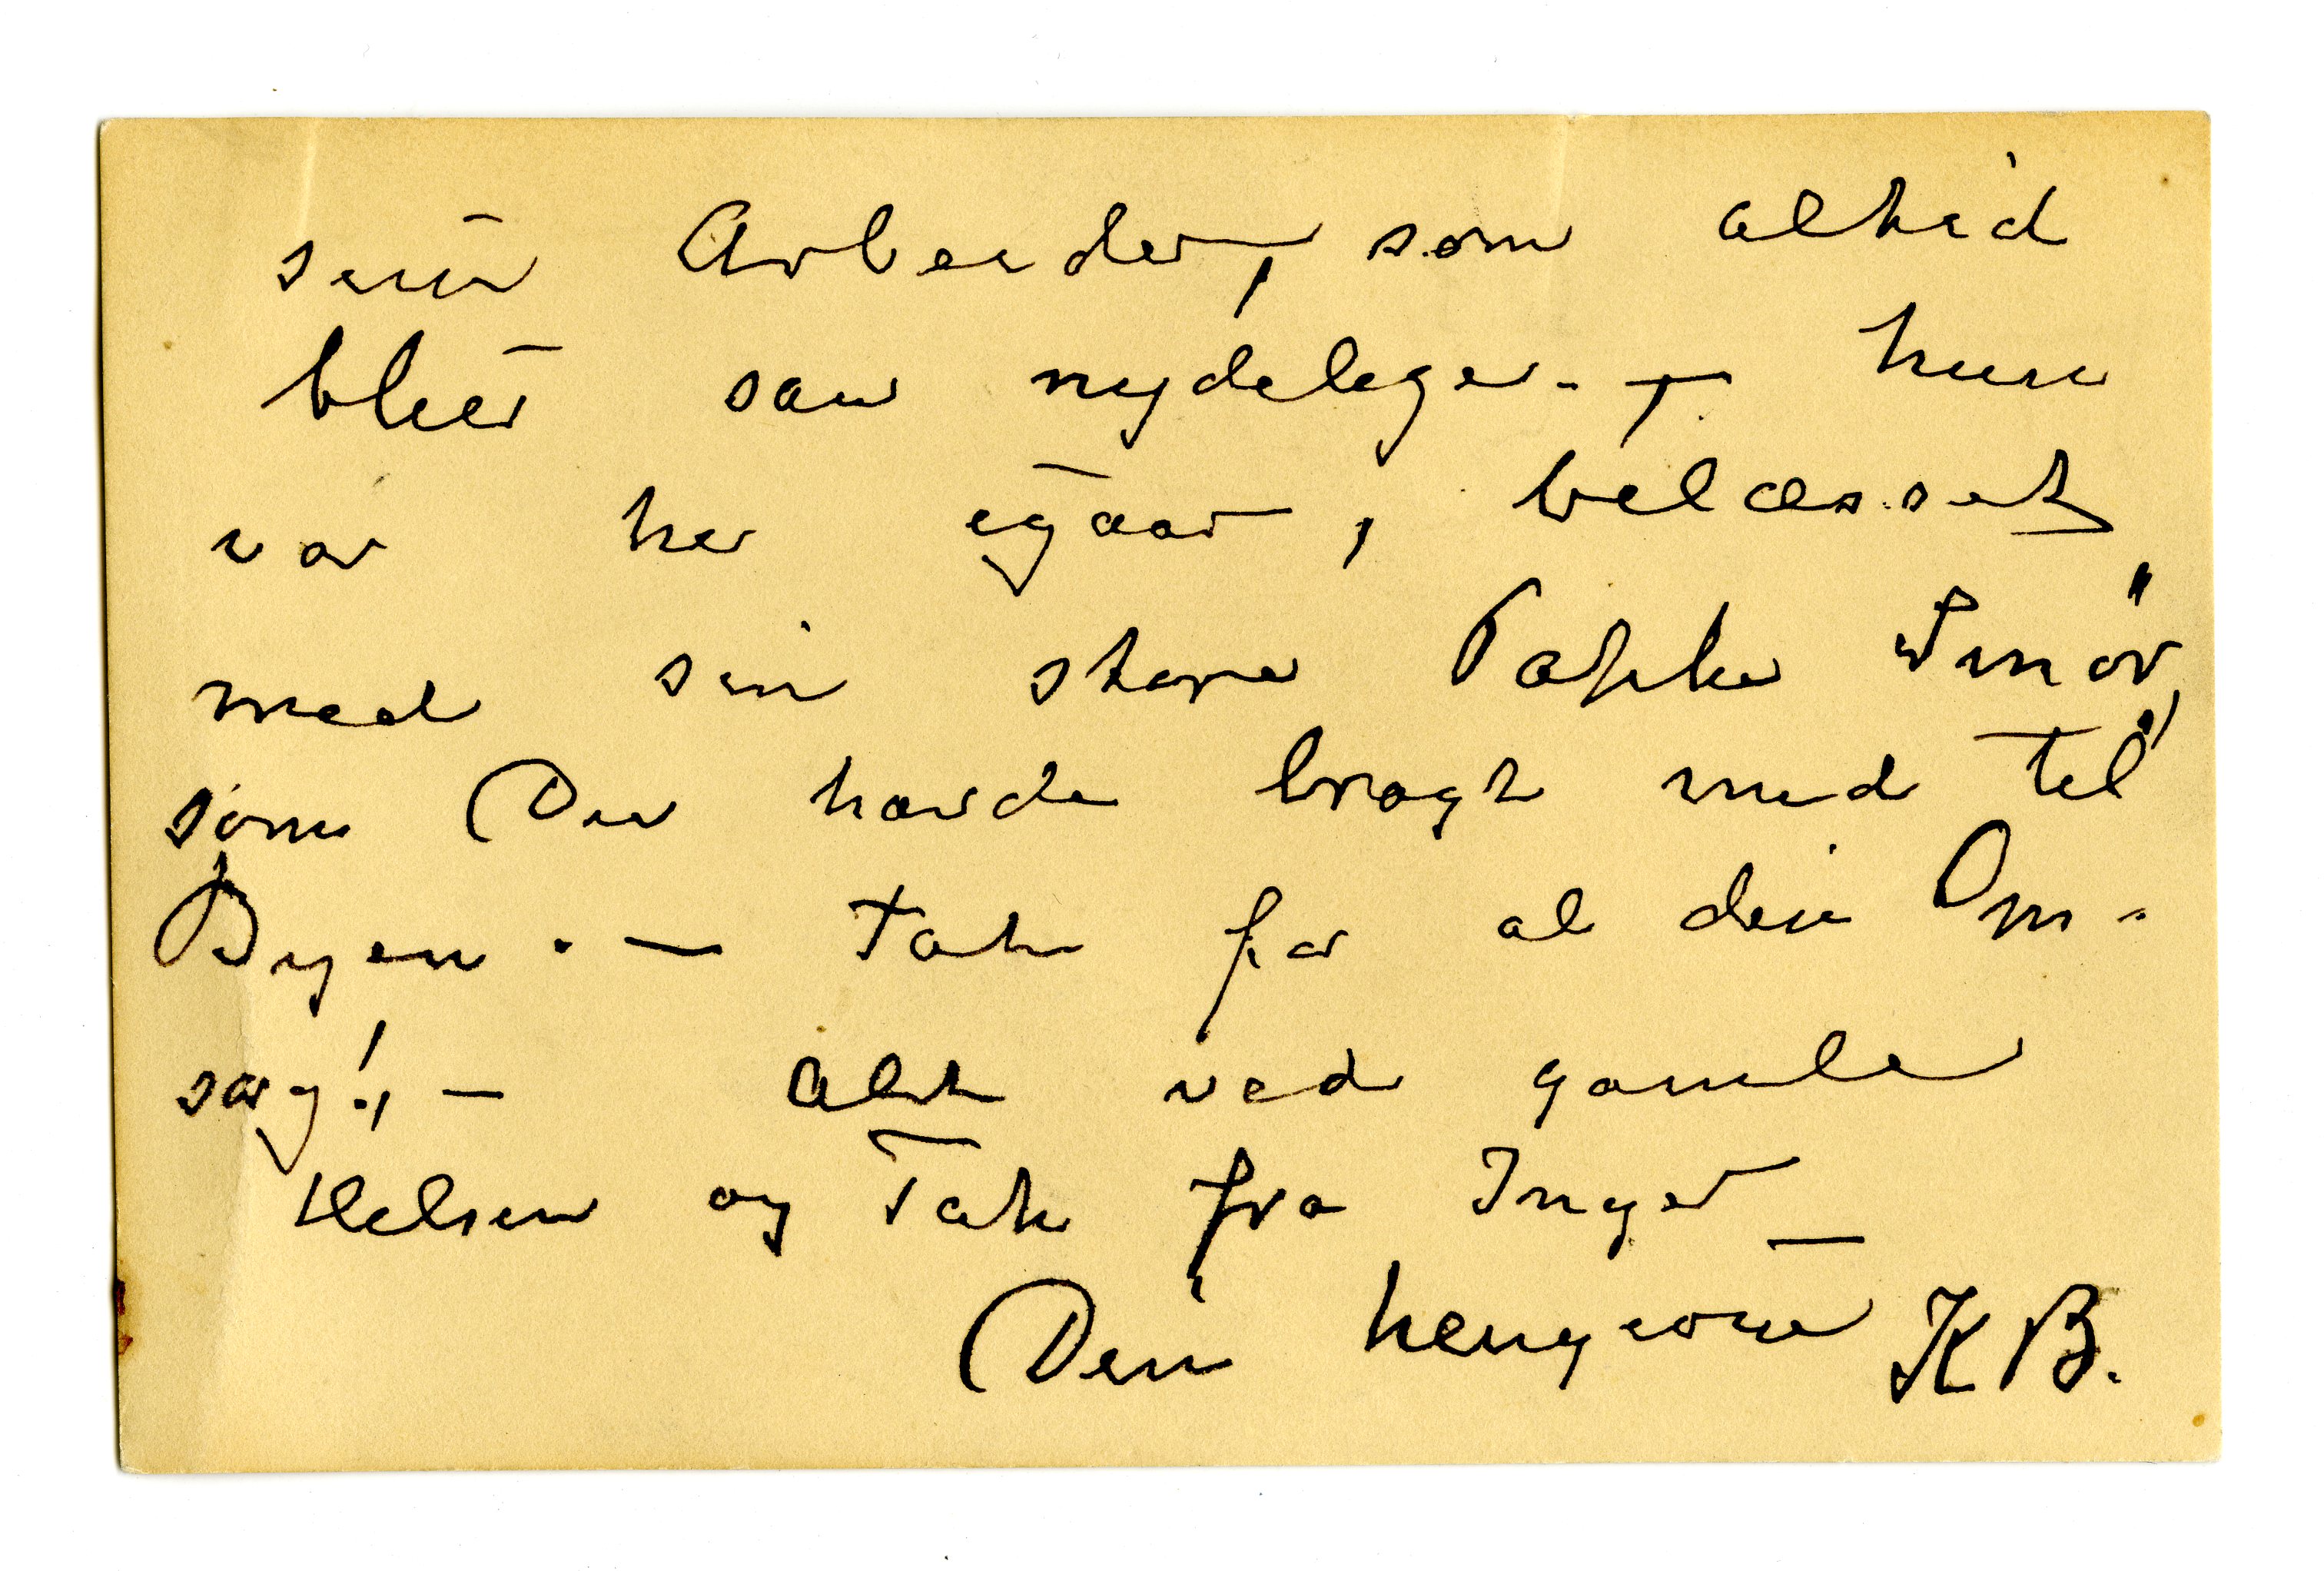 sine Arbeider, som altid
bliver saa nydelige. – hun
var her igaar, belæsset
med sin store Pakke Smør,
som Du havde bragt med til
Byen. – Tak for al din Om-
sorg! – Alt ved gamle
Hilsen og Tak fra Inger
Din hengivne KB.